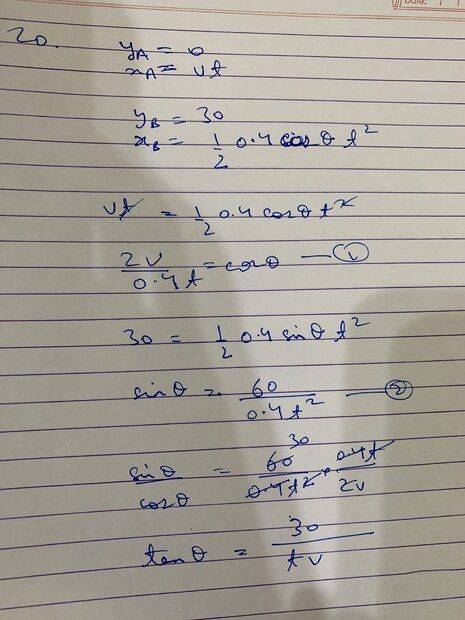 Date:
20.
y_A = 0
x_A = vt
y_B = 30
x_B = 1/2 0.4 cos θ t^2
vt = 1/2 0.4 cos θ t^2
2v/0.4t = cos θ — ①
30 = 1/2 0.4 sin θ t^2
sin θ = 60/0.4t^2 — ②
sin θ/cos θ = 60 30/0.4t^2 · 0.4t/2v
tan θ = 30/tv